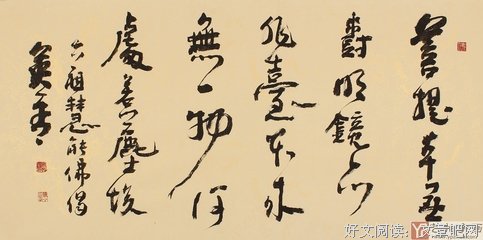 菩提本无
樹明鏡亦
非臺本來
無一物何
處惹塵埃
六祖慧能佛偈
好文阅读: